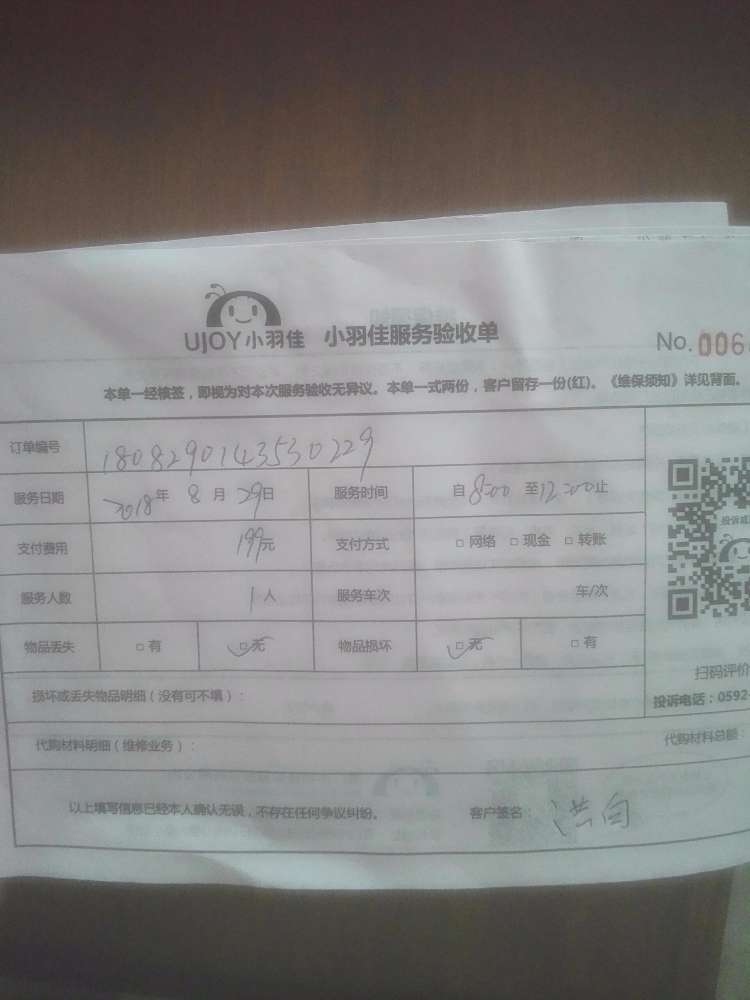 UJOY小羽佳 小羽佳服务验收单
No. 006
本单一经核签，即视为对本次服务验收无异议。本单一式两份，客户留存一份(红)。《维保须知》详见背面。
订单编号 1808290143530229
服务日期 2018年 8月 29日 服务时间 自 8:00 至 12:00 止
支付费用 199元 支付方式 □ 网络 □ 现金 □ 转账
服务人数 1人 服务车次 车/次
物品丢失 □ 有 ☑ 无 物品损坏 ☑ 无 □ 有
扫码评价
损坏或丢失物品明细（没有可不填）：
投诉电话：0592
代购材料明细（维修业务）： 代购材料总额：
以上填写信息已经本人确认无误，不存在任何争议纠纷。 客户签名：洪